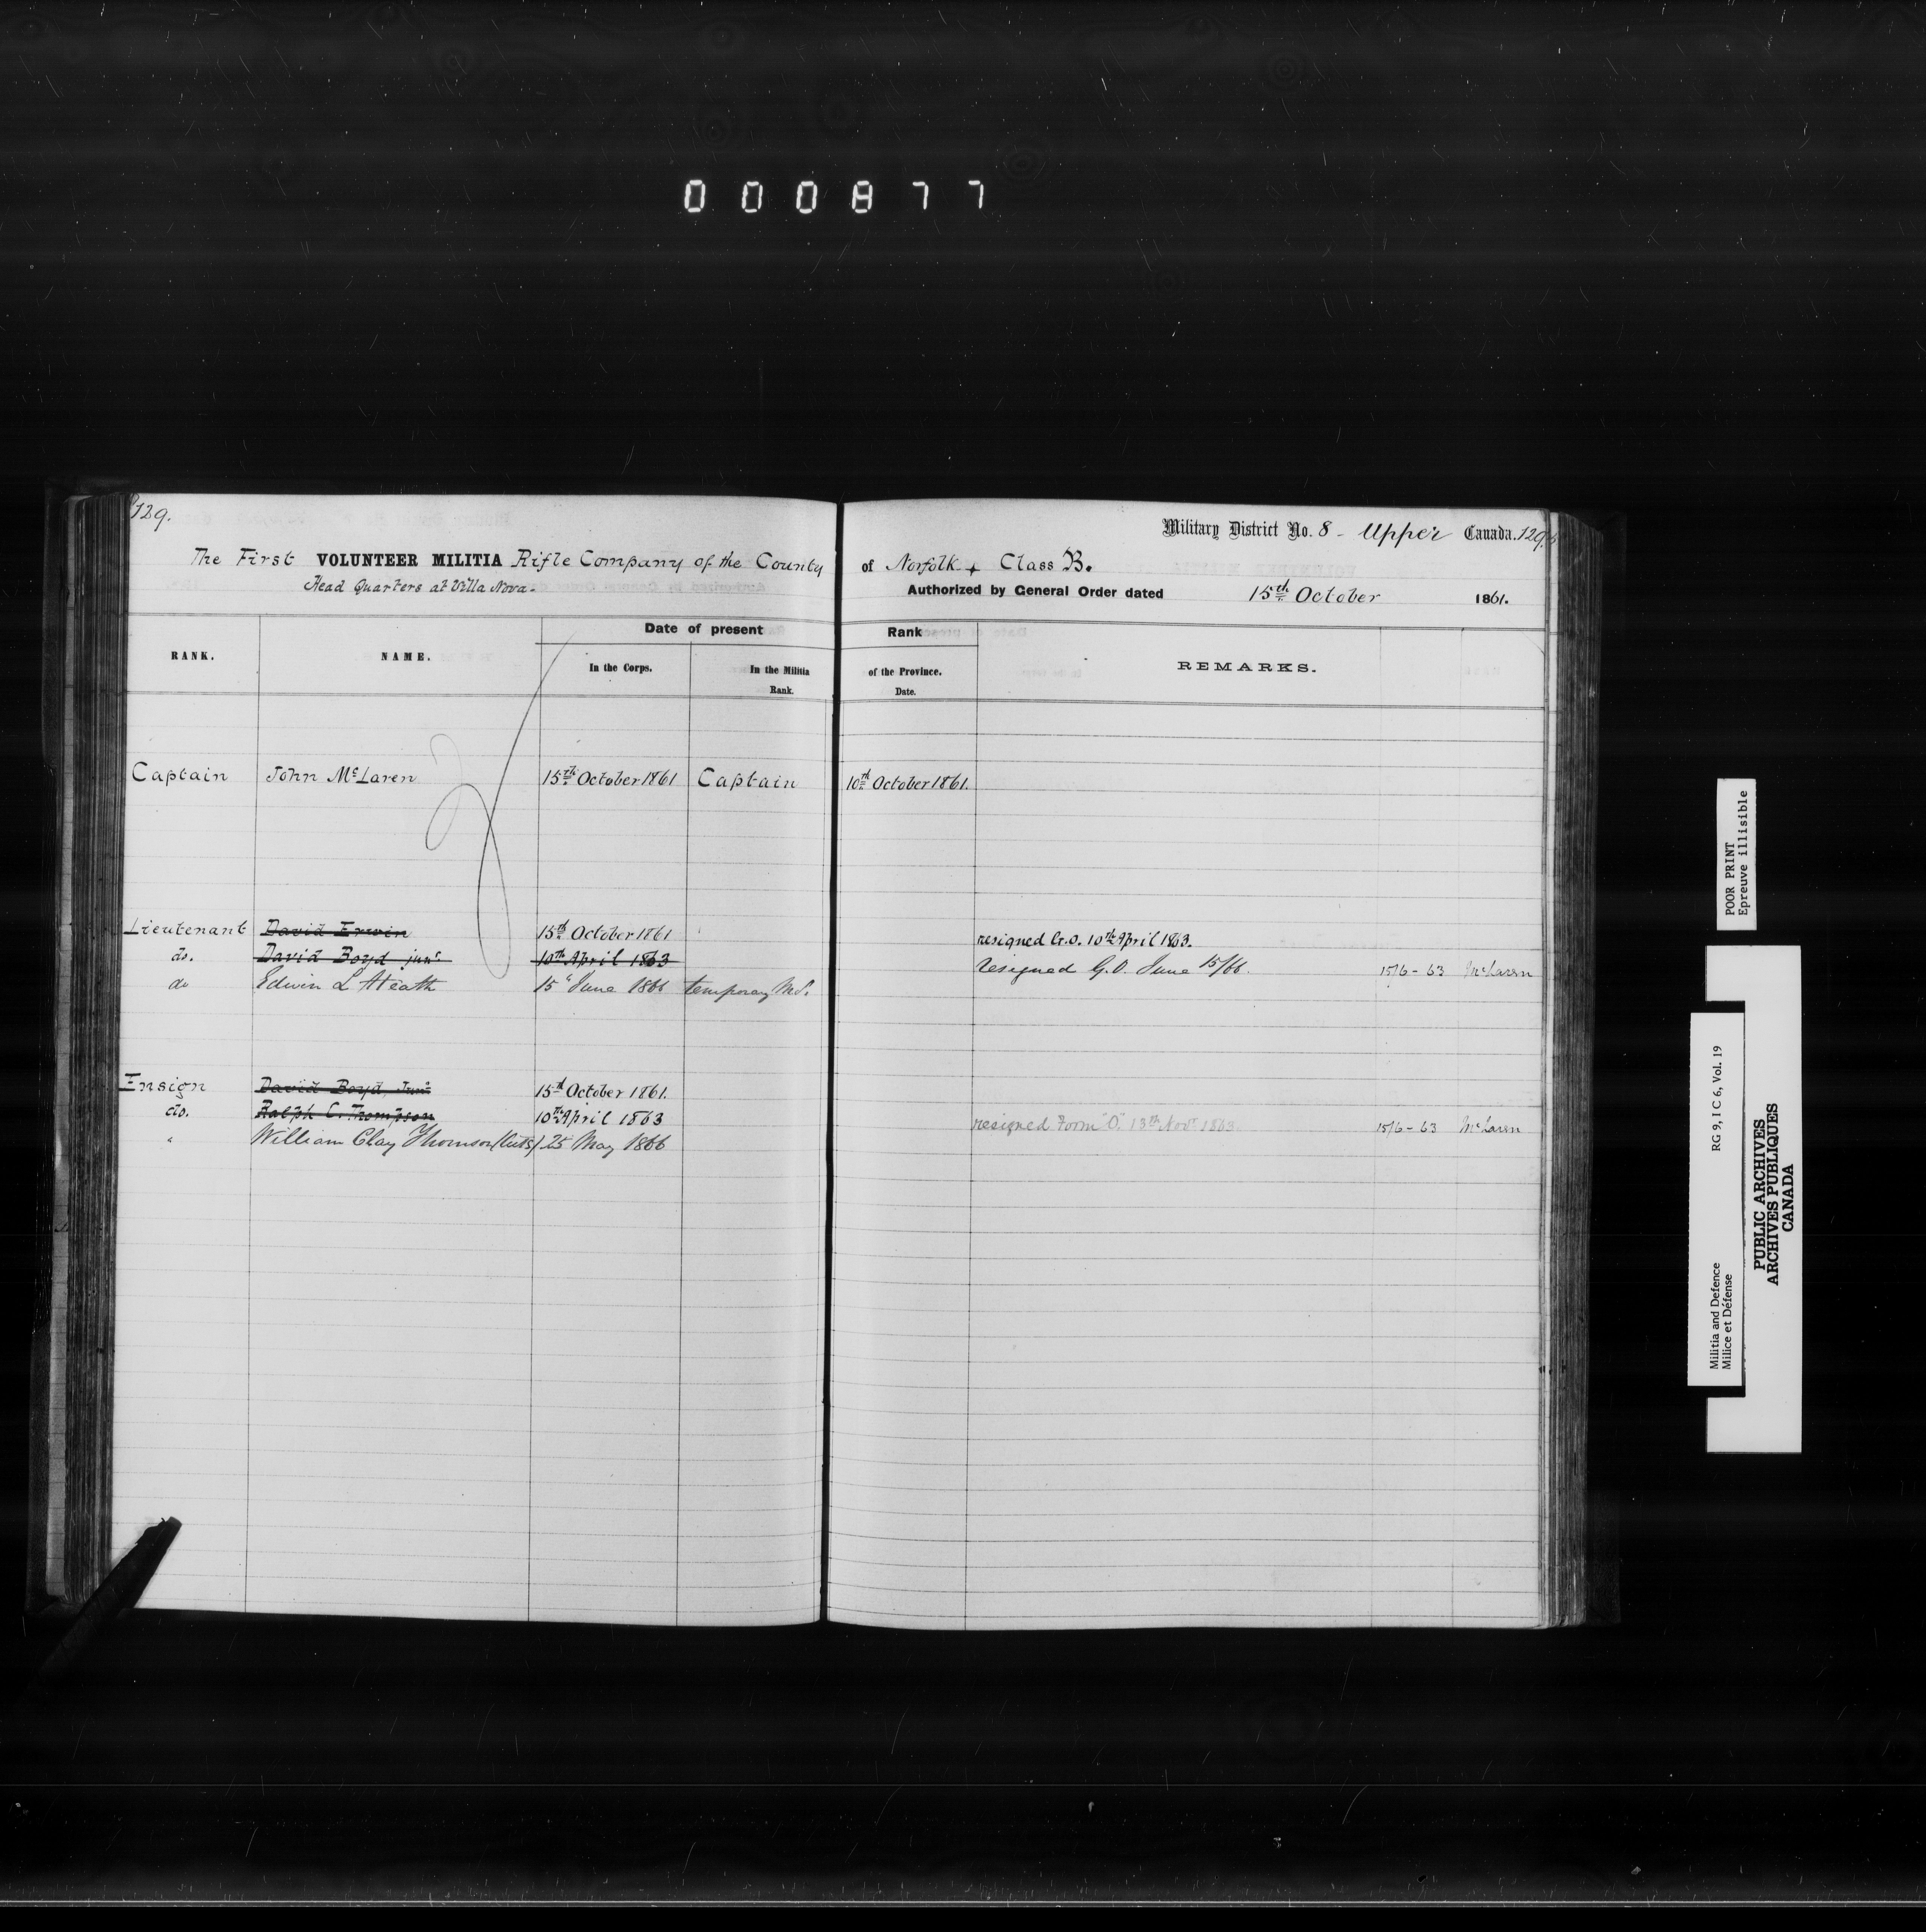 000877
129.
Military District No. 8 - Upper Canada. 129.
The First VOLUNTEER MILITIA Rifle Company of the County of Norfolk + Class B.
Head Quarters at Villa Nova.
Authorized by General Order dated 15th October 1861.
RANK. NAME. Date of present Rank REMARKS.
In the Corps. In the Militia of the Province.
Rank. Date.
Captain John McLaren 15th October 1861 Captain 10th October 1861.
Lieutenant David Erwin 15th October 1861 resigned G.O. 10th April 1863.
do. David Boyd junr 10th April 1863 resigned G.O. June 15/66. 15/6-63 McLaren
do Edwin L Heath 15 June 1866 temporary
Ensign David Boyd, Junr 15th October 1861.
do. Ralph C. Thompson 10th April 1863 resigned Form "O." 13th Novr 1863. 15/6-63 McLaren
" William Clay Thomson 25 May 1866
POOR PRINT
Epreuve illisible
RG 9, I C 6, Vol. 19
Militia and Defence
Milice et Défense
PUBLIC ARCHIVES
ARCHIVES PUBLIQUES
CANADA